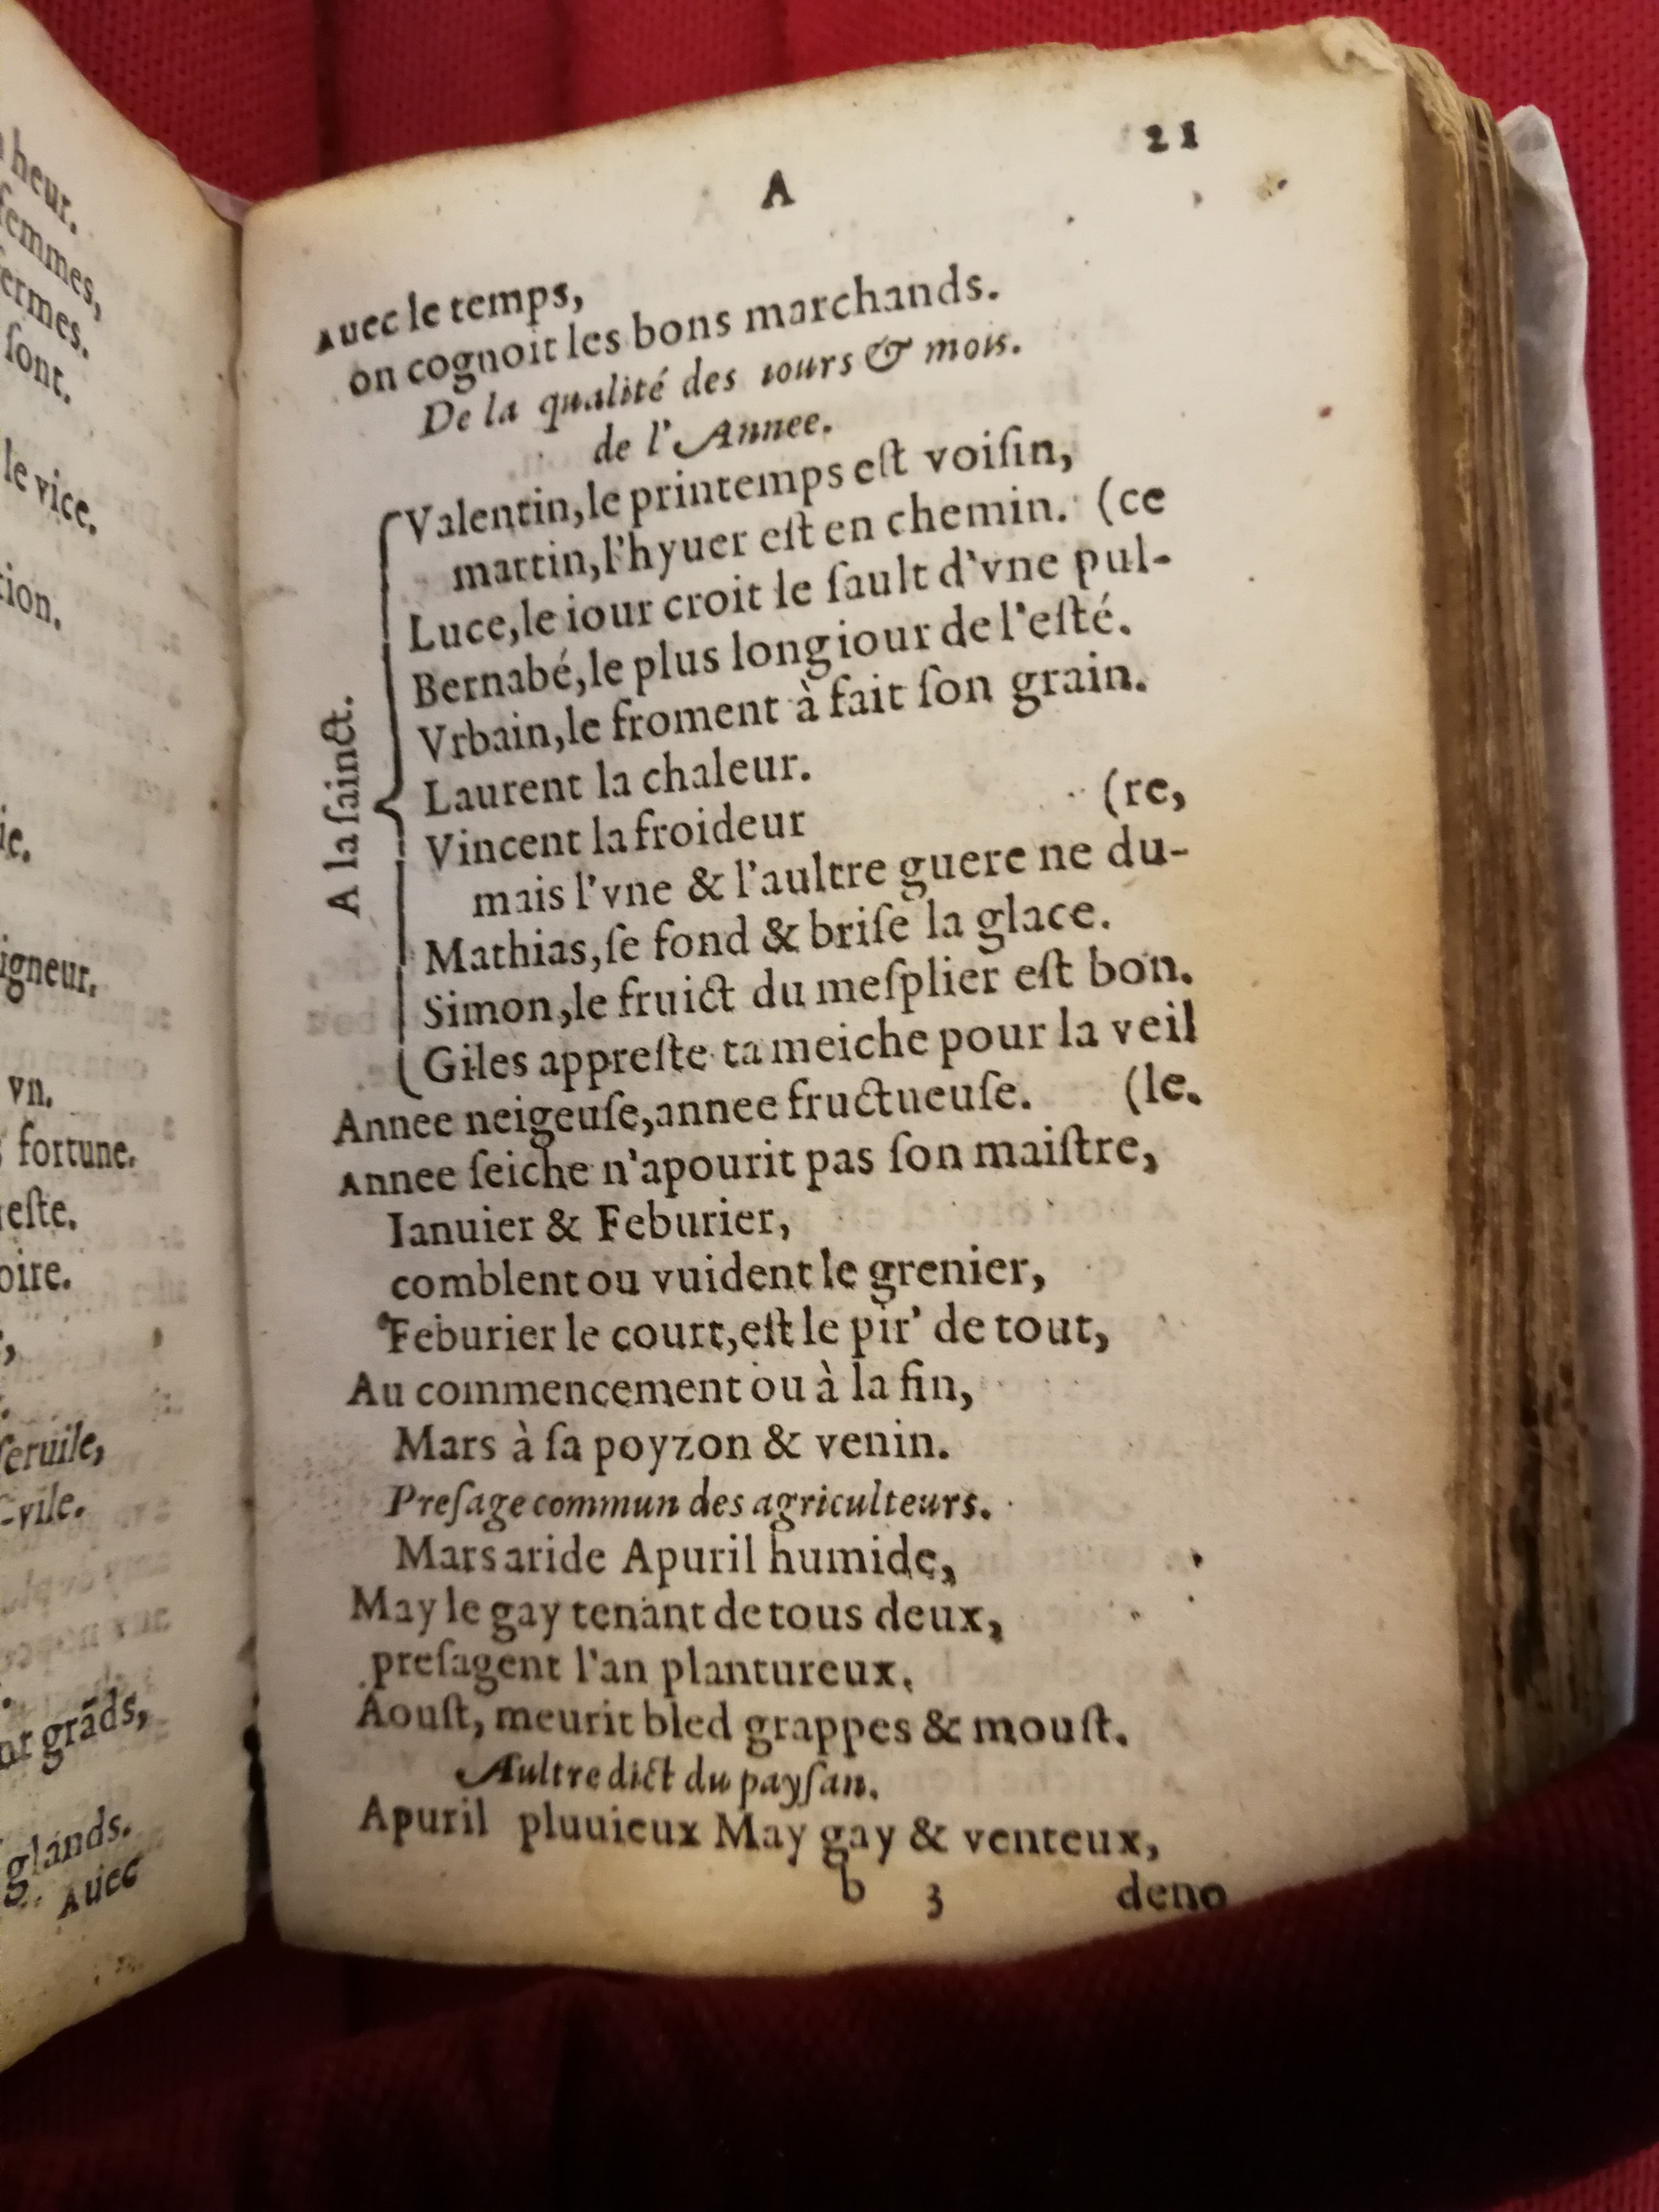 heur.
femmes,
ermes.
ſont.
le vice.
tion.
ie.
igneur.
vn.
fortune.
eſte.
oire.
ſeruile,
vile.
grāds,
glands.
Auec
A
21
Auec le temps,
on cognoit les bons marchands.
De la qualité des iours & mois.
de l'Annee.
A la ſainct.
Valentin, le printemps eſt voiſin,
martin, l'hyuer eſt en chemin. (ce
Luce, le iour croit le ſault d'vne pul-
Bernabé, le plus long iour de l'eſté.
Vrbain, le froment à fait ſon grain.
Laurent la chaleur.
Vincent la froideur (re,
mais l'vne & l'aultre guere ne du-
Mathias, ſe fond & briſe la glace.
Simon, le fruict du meſplier eſt bon.
Giles appreſte ta meiche pour la veil
Annee neigeuſe, annee fructueuſe. (le.
Annee ſeiche n'apourit pas ſon maiſtre,
Ianuier & Feburier,
comblent ou vuident le grenier,
Feburier le court, eſt le pir' de tout,
Au commencement ou à la fin,
Mars à ſa poyzon & venin.
Preſage commun des agriculteurs.
Mars aride Apuril humide,
May le gay tenant de tous deux,
preſagent l'an plantureux.
Aouſt, meurit bled grappes & mouſt.
Aultre dict du payſan.
Apuril pluuieux May gay & venteux,
b 3 deno